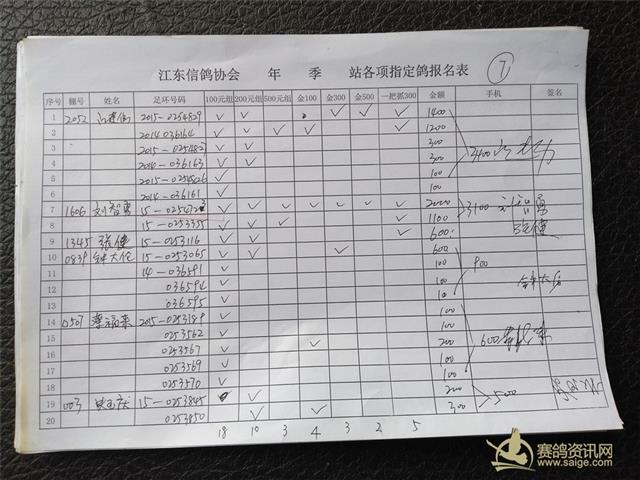 江东信鸽协会 年 季 站各项指定鸽报名表 7
序号 棚号 姓名 足环号码 100元组 200元组 500元组 金100 金300 金500 一把抓300 金额 手机 签名
1 2052 2015-0254829 √ √ √ √ √ 1400
2 2014036164 √ √ √ √ 1200
3 2015-025482 √ √ 300
4 2014-036163 √ √ 300 3400
5 2015-0254826 √ 100
6 2014-036161 √ 100
7 1606 刘智勇 15- √ √ √ √ √ √ √ 2000 3100 刘智勇
8 15-0253335 √ √ √ √ 1100
9 1345 张健 15-0253116 √ √ √ 600 张健
10 0839 钟大伦 15-0253065 √ √ √ 600
11 14-036591 √ 100 900
12 036594 √ 100
13 036595 √ 100
14 0507 2015-0253189 √ 100
15 0253562 √ 100
16 0253567 √ √ 200 600
17 0253569 √ 100
18 0253570 √ 100
19 003 15-0253845 √ √ 200 500
20 0253850 √ √ 300
18 10 3 4 3 2 5
赛鸽资讯网
www.saige.com